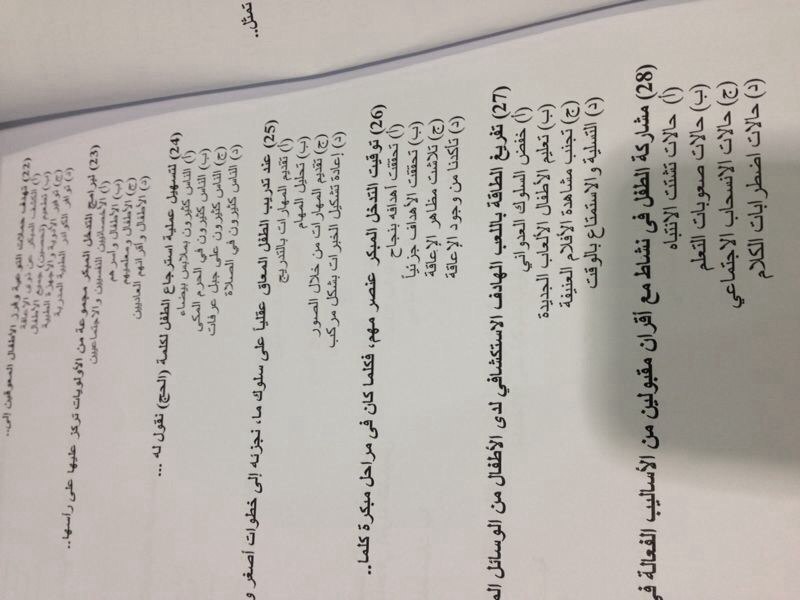 تمثّل..
22) تهدف حملات التوعية وفرز الأطفال المعوقين إلى..
أ) الكشف المبكر عن ذوي الإعاقة
ب) تطعيم (تحصين) جميع الأطفال
ج) توفير الأدوية والأجهزة الطبية
د) توافر الكوادر الطبية المدربة
23) لبرامج التدخل المبكر مجموعة من الأولويات تركز عليها على رأسها..
أ) الأخصائيين النفسيين والاجتماعيين
ب) الأطفال وأسرهم
ج) الأطفال ومعلميهم
د) الأطفال وأقرانهم العاديين
24) لتسهيل عملية استرجاع الطفل لكلمة (الحج) نقول له ...
أ) الناس كثيرون بملابس بيضاء
ب) الناس كثيرون في الحرم المكي
ج) الناس كثيرون على جبل عرفات
د) الناس كثيرون في الصلاة
25) عند تدريب الطفل المعاق عقلياً على سلوك ما، نجزئه إلى خطوات أصغر و
أ) تقديم المهارات بالتدريج
ب) تحليل المهام
ج) تقديم المهارات من خلال الصور
د) إعادة تشكيل الخبرات بشكل مركب
26) توقيت التدخل المبكر عنصر مهم، فكلما كان في مراحل مبكرة كلما..
أ) تحققت أهدافه بنجاح
ب) تحققت الأهداف جزئياً
ج) تلاشت مظاهر الإعاقة
د) تأكدنا من وجود الإعاقة
27) تفريغ الطاقة باللعب الهادف الاستكشافي لدى الأطفال من الوسائل الم
أ) خفض السلوك العدواني
ب) تعليم الأطفال الألعاب الجديدة
ج) تجنب مشاهدة الأفلام العنيفة
د) التسلية والاستمتاع بالوقت
28) مشاركة الطفل في نشاط مع أقران مقبولين من الأساليب الفعالة في
أ) حالات تشتت الانتباه
ب) حالات صعوبات التعلم
ج) حالات الانسحاب الاجتماعي
د) حالات اضطرابات الكلام